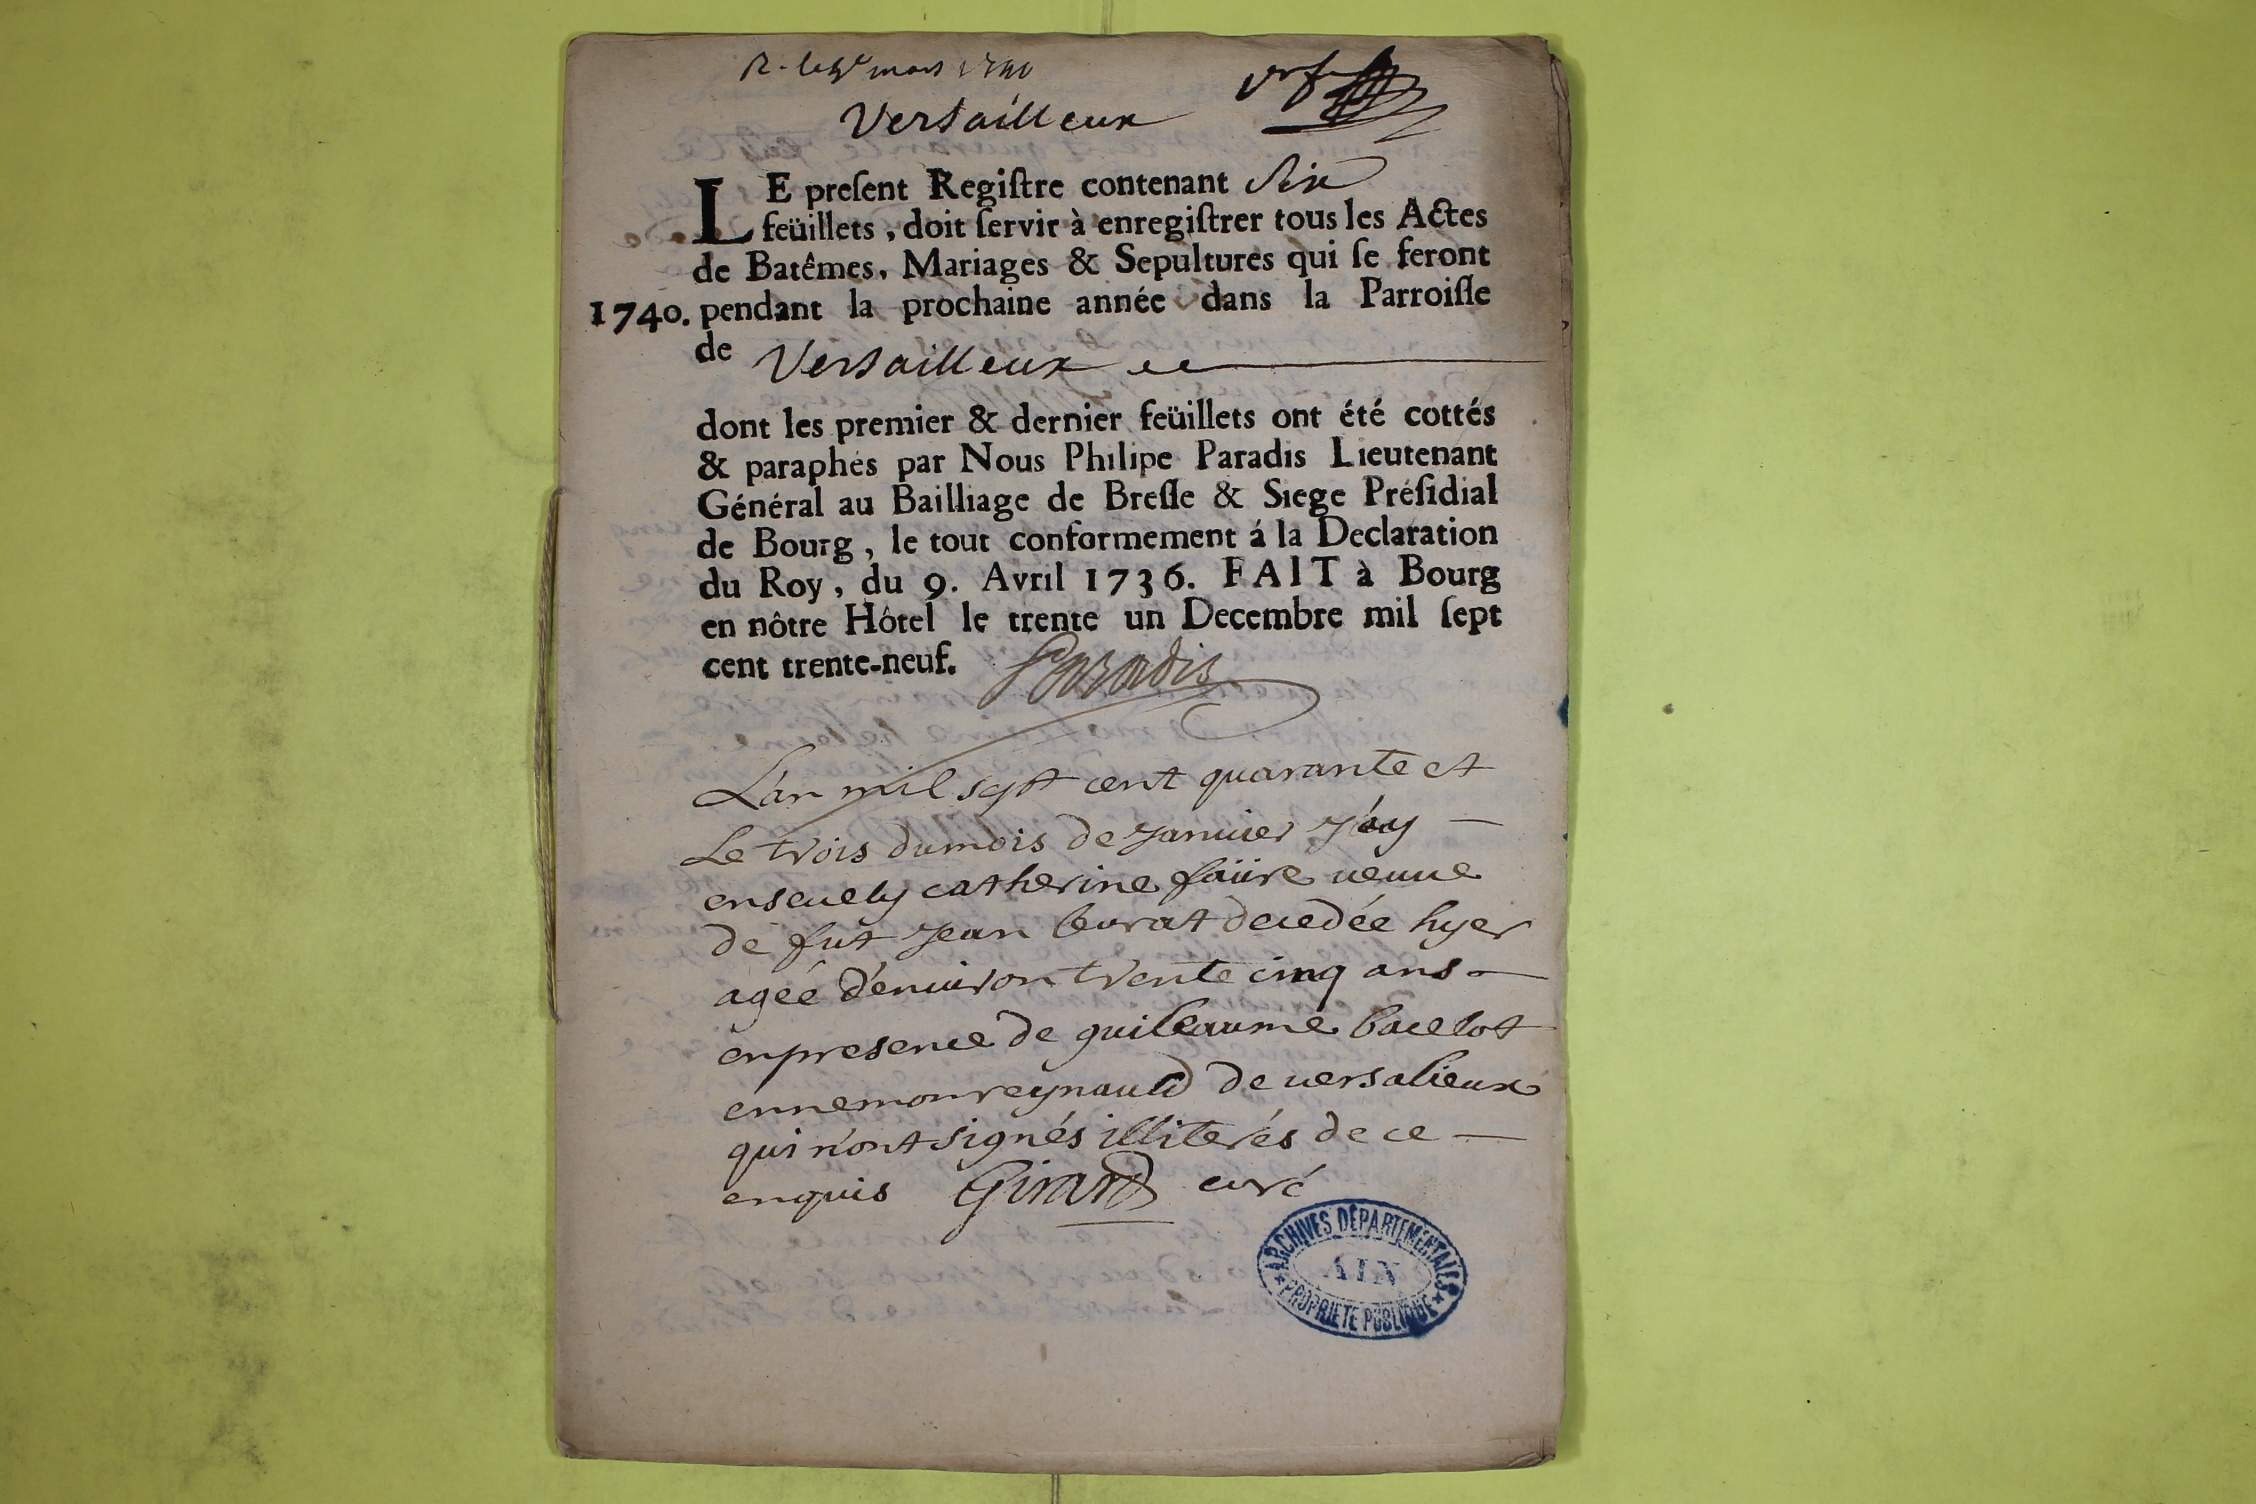 R. le 4e mars 1741
Versailleux
LE preſent Regiſtre contenant Six
feüillets, doit ſervir à enregiſtrer tous les Actes
de Batêmes, Mariages & Sepultures qui ſe feront
1740. pendant la prochaine année dans la Parroiſſe
de Versailleux
dont les premier & dernier feüillets ont été cottés
& paraphés par Nous Philipe Paradis Lieutenant
Général au Bailliage de Breſſe & Siege Préſidial
de Bourg, le tout conformement á la Declaration
du Roy, du 9. Avril 1736. FAIT à Bourg
en nôtre Hôtel le trente un Decembre mil ſept
cent trente-neuf. Paradis
L'an mil sept cent quarante et
Le trois du mois de Janvier J'ay
ensevely catherine faüre veuve
de fut Jean burat decedée hyer
agée d'environ trente cinq ans
en presence de guileaume bacelot
ennemon reynaud de versalieux
qui n'ont signés illiterés de ce
enquis Girard curé
ARCHIVES DÉPARTEMENTALES
AIN
PROPRIETE PUBLIQUE